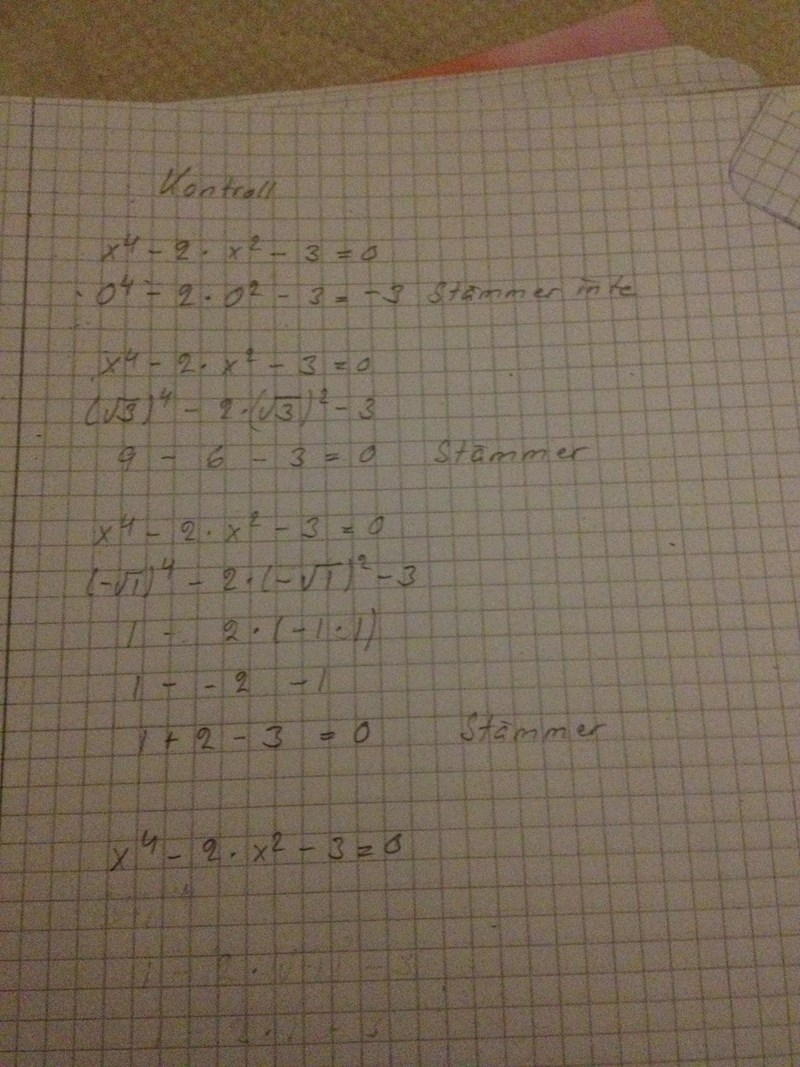 Kontroll
x⁴ - 2 · x² - 3 = 0
0⁴ - 2 · 0² - 3 = -3 Stämmer inte
x⁴ - 2 · x² - 3 = 0
(√3)⁴ - 2 · (√3)² - 3
9 - 6 - 3 = 0 Stämmer
x⁴ - 2 · x² - 3 = 0
(-√1)⁴ - 2 · (-√1)² - 3
1 - 2 · (-1 · 1)
1 - - 2 - 1
1 + 2 - 3 = 0 Stämmer
x⁴ - 2 · x² - 3 = 0